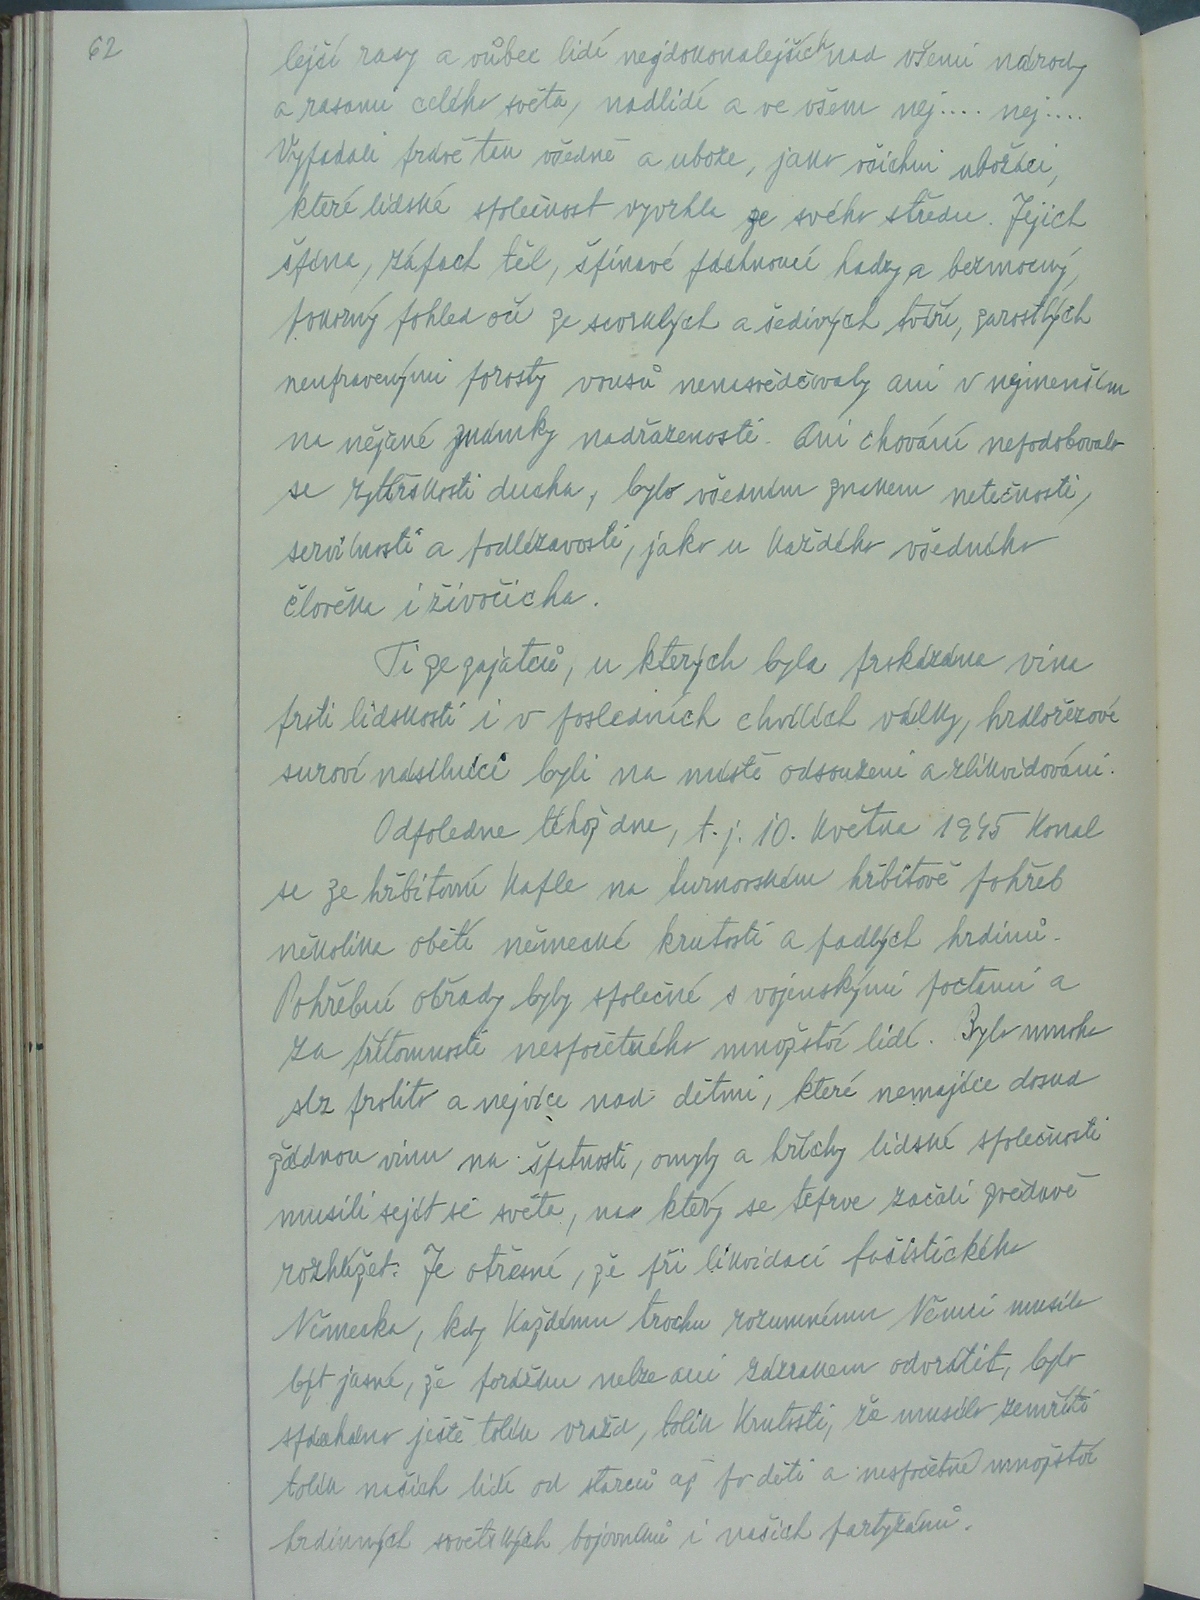 62
lejší rasy a vůbec lidí nejdokonalejších nad všemi národy
a rasami celého světa, nadlidí a ve všem nej.... nej....
Vypadali právě tak všedně a uboze, jako všichni ubožáci,
které lidská společnost vyvrhla ze svého středu. Jejich
špína, zápach těl, špinavé páchnoucí hadry a bezmocný,
pokorný pohled očí ze scvrklých a šedivých tváří, zarostlých
neupravenými porosty vousů nenasvědčovaly ani v nejmenším
na nějaké známky nadřazenosti. Ani chování nepodobovalo
se rytířskosti ducha, bylo všedním znakem netečnosti,
servilnosti a podlézavosti, jako u každého všedního
člověka i živočicha.
Ti ze zajatců, u kterých byla prokázána vina
proti lidskosti i v posledních chvílích války, hrdlořezové
suroví násilníci byli na místě odsouzeni a zlikvidováni.
Odpoledne téhož dne, t. j. 10. května 1945 konal
se ze hřbitovní kaple na turnovském hřbitově pohřeb
několika obětí německé krutosti a padlých hrdinů.
Pohřební obřady byly společné s vojenskými poctami a
za přítomnosti nespočetného množství lidí. Bylo mnoho
slz prolito a nejvíce nad dětmi, které nemajíce dosud
žádnou vinu na špatnosti, omyly a hříchy lidské společnosti
musili sejít se světa, na který se teprve začali zvědavě
rozhlížet. Je otřesné, že při likvidaci fašistického
Německa, kdy každému trochu rozumnému Němci musilo
být jasné, že porážku nelze ani zázrakem odvrátit, bylo
spácháno ještě tolik vražd, tolik krutosti, že musilo zemříti
tolik našich lidí od starců až po děti a nespočetné množství
hrdinných sovětských bojovníků i našich partyzánů.